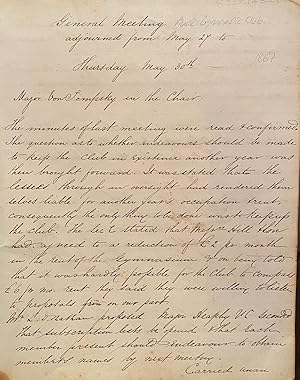 General Meeting
adjourned from May 27 to
1867
Thursday May 30th
Major Von Tempsky in the Chair
The minutes of last meeting were read & confirmed
The question as to whether endeavours should be made
to keep the Club in existence another year was
then brought forward. It was stated that the
Lessees through an oversight had rendered them
selves liable for another year's occupation & rent,
consequently the only thing to be done was to keep up
the Club. The Sec stated that Messrs Hill
had agreed to a reduction of £2 per month
in the rent of the Gymnasium & on being told
that it was hardly possible for the Club to
£6 per mo. rent they said they were willing to listen
to proposals from on our part.
Mr L D Nathan proposed Major Heaphy VC seconded
That subscription lists be opened & that each
member present should endeavour to obtain
members names by next meeting.
Carried unan